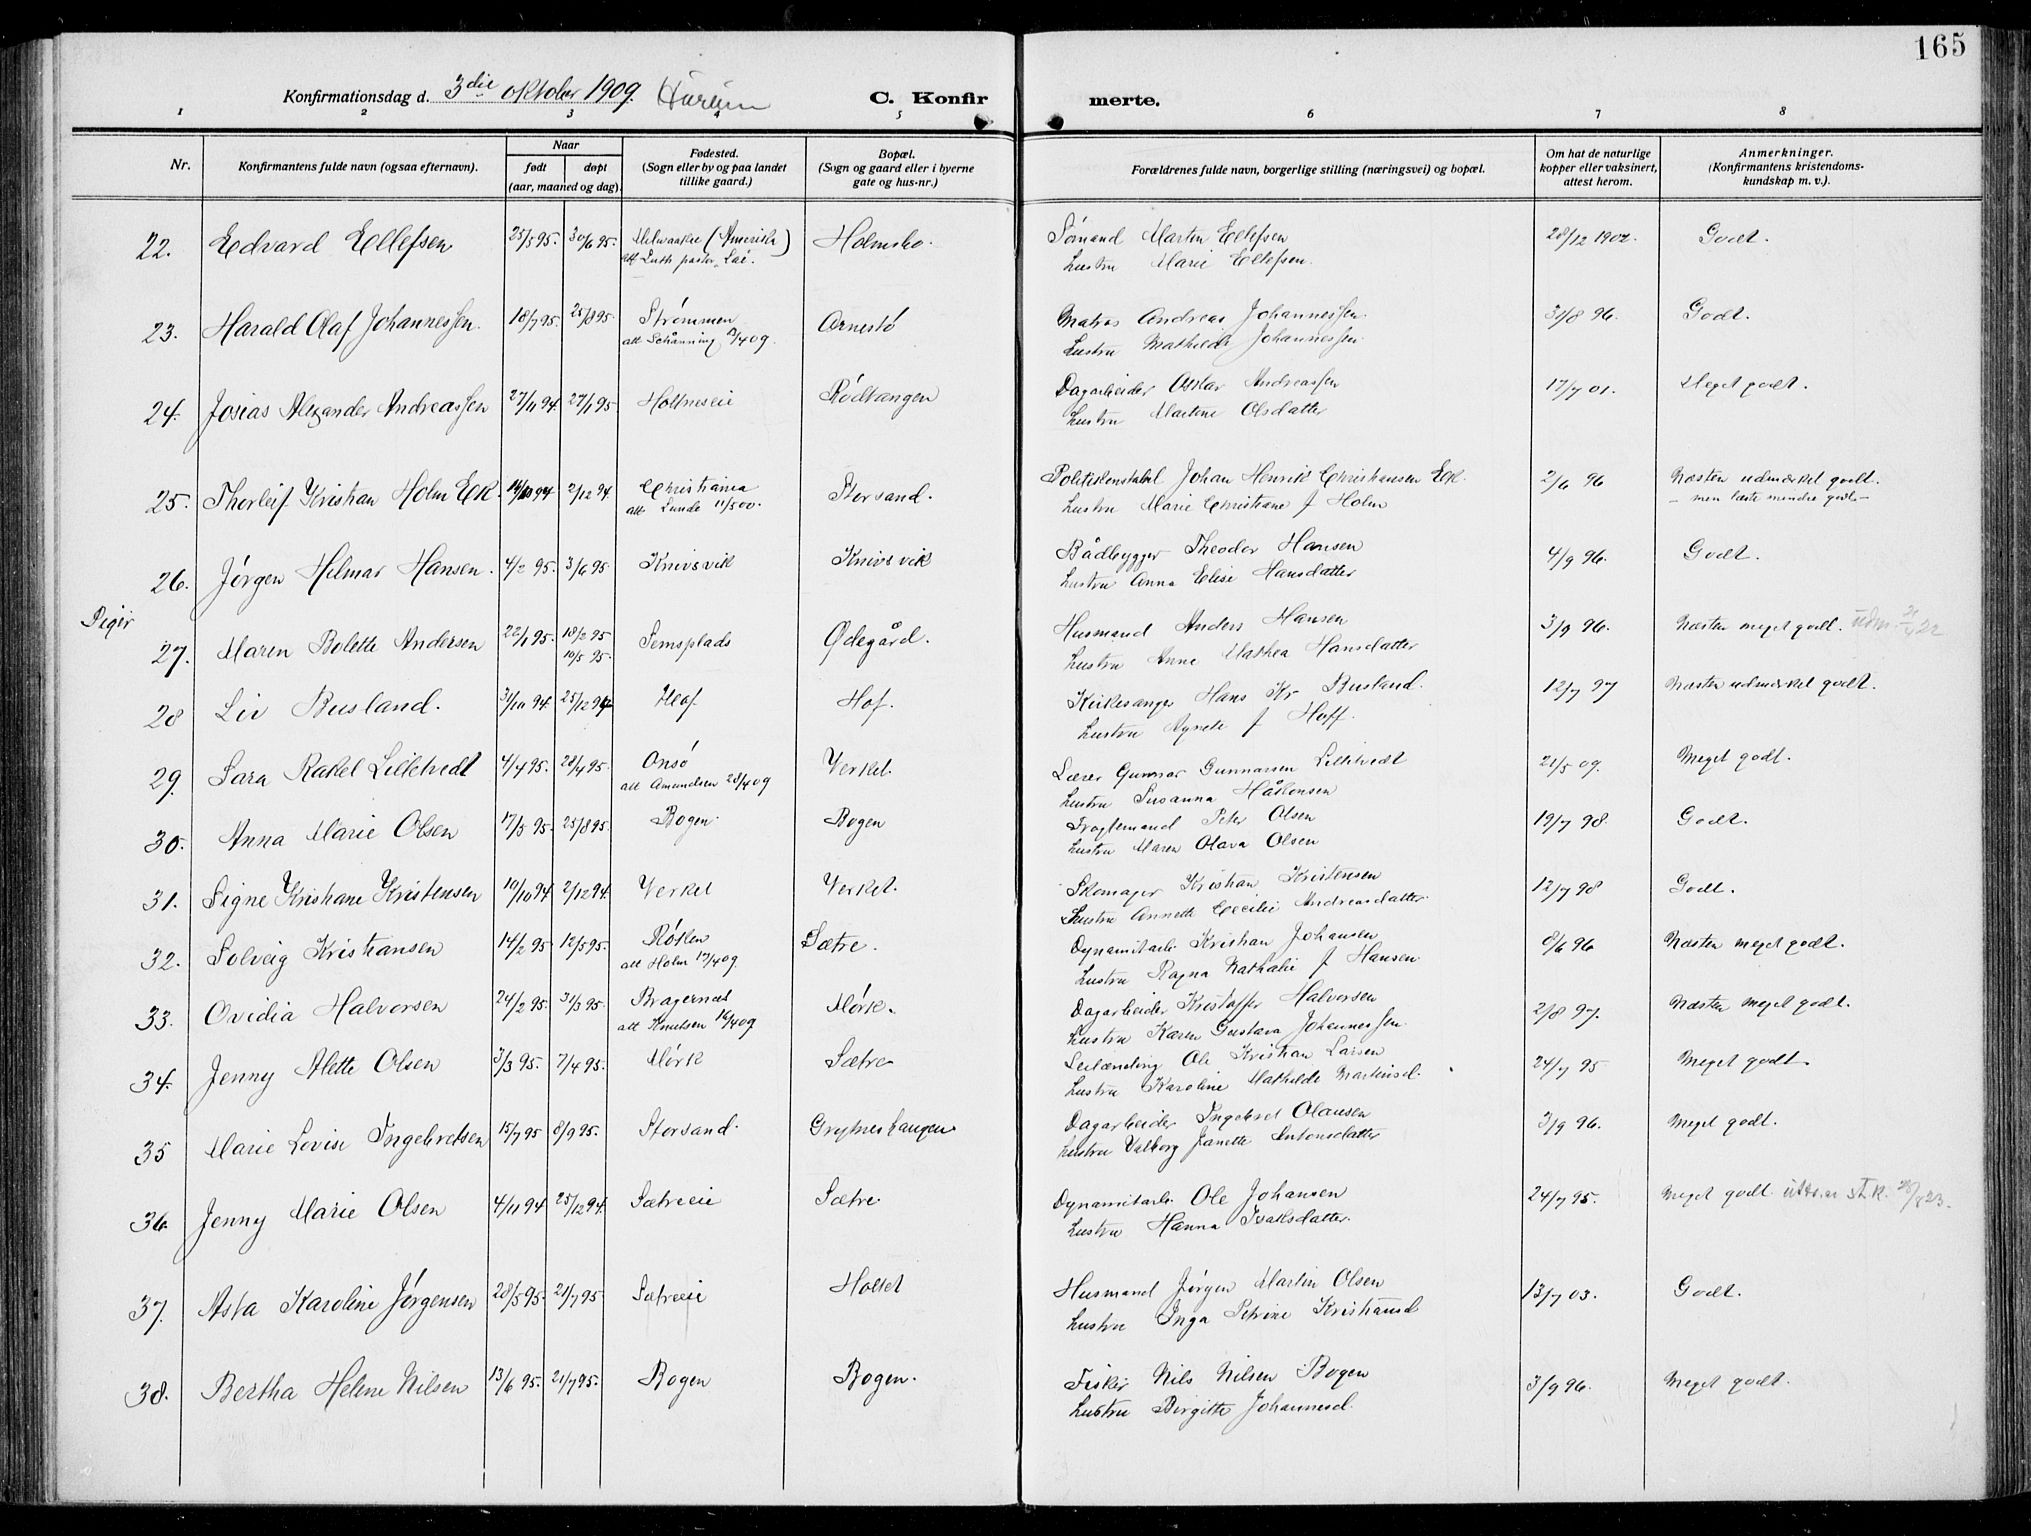 165
Konfirmationsdag d. 3die oktober 1909. Hurum
C. Konfir merte.
1 2 3 4 5 6 7 8
Nr.
Konfirmantens fulde navn (ogsaa efternavn).
Naar
født døpt
(aar, maaned og dag).
Fødested.
(Sogn eller by og paa landet
tillike gaard.)
Bopæl.
(Sogn og gaard eller i byerne
gate og hus-nr.)
Forældrenes fulde navn, borgerlige stilling (næringsvei) og bopæl.
Om hat de naturlige
kopper eller vaksinert,
attest herom.
Anmerkninger.
(Konfirmantens kristendoms-
kundskap m. v.).
22. Edvard Ellefsen 25/5 95. 30/6 95. Milwaukee (Amerika) Holmsbo. Sømand Martin Ellefsen 28/12 1902. Godt.
att Luth pastor
Hustru Marie Ellefsen.
23. Harald Olaf Johannessen. 18/7 95. 25/8 95. Strømmen Ørnestø Matros Andreas Johannessen. 31/8 96. Godt.
att Schånning 2/4 09.
Hustru Mathilde Johannessen.
24. Josias Alexander Andreassen 27/11 94. 27/1 95. Holtneseie Rødtangen Dagarbeider Oskar Andreassen 17/7 01. Meget godt.
Hustru Martine Olsdatter
25. Thorleif Kristian Holm Eck. 14/10 94 2/12 94. Christiania Storsand. Politikonstabel Johan Henrik Christiansen Eck. 2/6 96 Næsten udmerket godt.
att Lunde 11/5 00.
Hustru Marie Christiane f Holm
– men læste mindre godt –
26. Jørgen Hilmar Hansen. 4/2 95. 3/6 95 Knivsvik Knivsvik Bådbygger Theodor Hansen 4/9 96. Godt.
Hustru Anna Elise Hansdatter
Piger
27. Maren Bolette Andersen 22/1 95. 10/2 95 Semsplads Ødegård. Husmand Anders Hansen 3/9 96. Næsten meget godt. udm. 21/4 22
10/5 95.
Hustru Anne Mathea Hansdatter
28 Liv Busland. 31/10 94. 25/12 94 Hof Hof. Kirkesanger Hans Kr Busland. 12/7 97 Næsten udmerket godt.
Hustru Agnete f Hoff.
29. Sara Rakel Lilletvedt 4/4 95. 28/4 95. Onsø Verket. Lærer Gunnar Gunnarsen Lilletvedt 21/5 09. Meget godt.
att Amundsen 28/4 09
Hustru Susanna Håkonsen
30. Anna Marie Olsen 17/5 95. 25/8 95. Bogen. Bogen Fragtemand Peter Olsen 19/7 98. Godt.
Hustru Maren Olava Olsen
31. Signe Kristiane Kristensen 10/10 94 2/12 94. Verket Verket. Skomager Kristian Kristensen 12/7 98 Godt.
Hustru Annette Cecilie Andreasdatter.
32. Solveig Kristiansen 14/2 95. 12/5 95. Røken Sætre. Dynamitarb. Kristian Johansen 8/6 96 Næsten meget godt.
att Holm 17/4 09.
Hustru Ragna Nathalie f Hansen
33. Ovidia Halvorsen 24/2 95. 31/3 95. Bragernæs Mørk. Dagarbeider Kristoffer Halvorsen 2/8 97. Næsten meget godt.
att Knutsen 16/4 09
Hustru Karen Gustava Johannessen.
34. Jenny Alette Olsen 3/3 95. 7/4 95. Mørk Sætre Ole Kristian Larsen 24/7 95 Meget godt.
Hustru Karoline Mathilde Martinsd.
35 Marie Lovise Ingebretsen 15/7 95 8/9 95. Storsand. Grytneshaugen Dagarbeider Ingebret Olausen 3/9 96. Meget godt.
Hustru Valborg Janette Antonsdatter
36. Jenny Marie Olsen 4/11 94 25/12 94. Sætreeie Sætre. Dynamitarb. Ole Johansen 24/7 95. Meget godt
Hustru Hanna Isaksdatter.
37. Asta Karoline Jørgensen 28/5 95. 21/7 95. Sætreeie Holtet Husmand Jørgen Martin Olsen 13/7 03. Godt.
Hustru Inga Petrine Kristiansd
38. Bertha Helene Nilsen 13/6 95. 21/7 95. Bogen Bogen. Fisker Nils Nilsen Bogen 3/9 96. Meget godt.
Hustru Birgitte Johannesd.